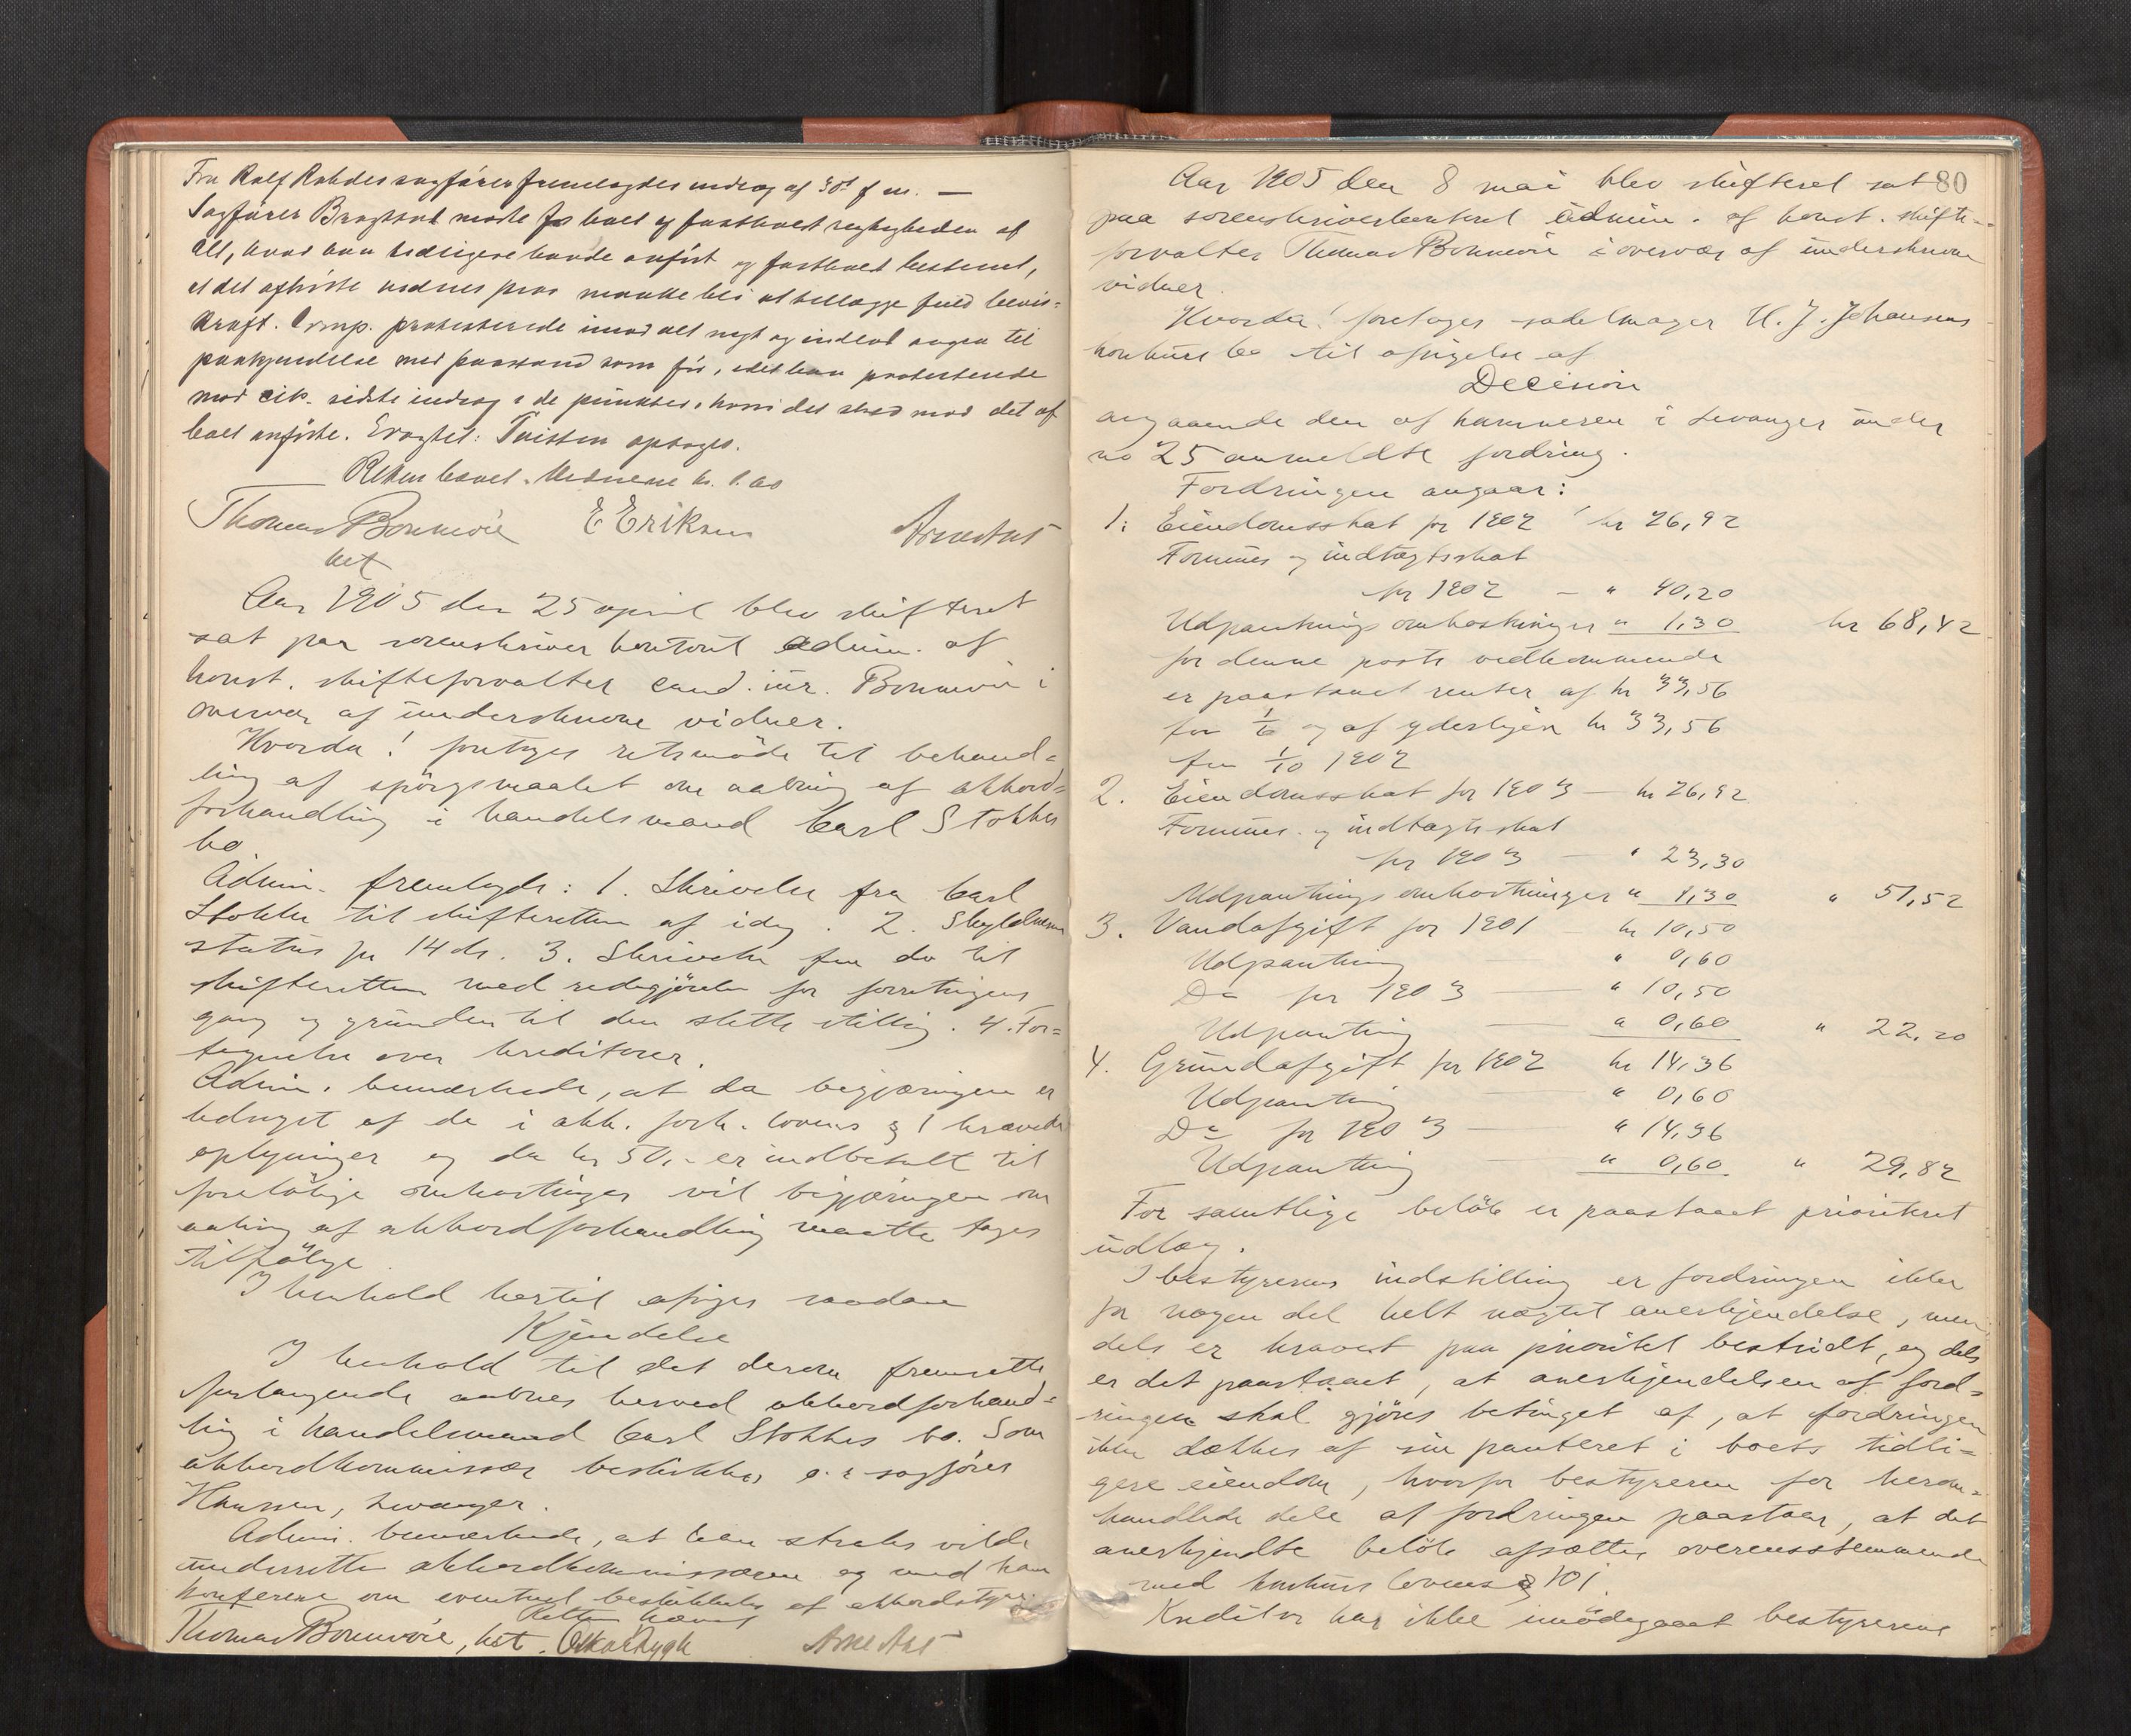 Fra Rolf Rohdes sagfører fremlagdes indlæg af 30te f m. —
Sagfører Bragstad mødte for boet og fastholdt rigtigheden af
alt, hvad han tidligere havde anført og fastholdt bestemt,
at det afhørte vidnes prov maatte bli at tillægge fuld bevis=
kraft. Comp. protesterede imod alt nyt og indlod sagen til
paakjendelse med paastand som før, idet han protesterede
mod cit. sidste indlæg i de punkter, hvori det stred mod det af
boet anførte. Eragtet: Tvisten optages.
Retten hævet. Vidnerne kr. 1.60
Thomas Bonnevie E Eriksen Arne Aas
kst
Aar 1905 den 25 april blev skifteret
sat paa sorenskriver kontoret admin. af
konst. skifteforvalter cand. jur. Bonnevie i
overvær af underskrevne vidner.
Hvorda! foretoges retsmøde til behand=
ling af spørgsmaalet om aabning af akkord=
forhandling i handelsmand Carl Stokkes
bo.
Admin. fremlagde: 1. Skrivelse fra Carl
Stokke til skifteretten af idag. 2. Skyldneren
status pr 14 ds. 3. Skrivelse fra do til
skifteretten med redegjørelse for forretningens
gang og grunden til den slette stilling. 4. For=
tegnelse over kreditorer.
Admin. bemærkede, at da begjæringen er
ledsaget af de i akk. forh. lovens § 1 krævede
oplysninger og da kr 50,- er indbetalt til
foreløbige omkostninger vil begjæringen om
aabning af akkordforhandling maatte tages
tilfølge
I henhold hertil afsiges saadan
Kjendelse
I henhold til det derom fremsatte
forlangende aabnes herved akkordforhand=
ling i handelsmand Carl Stokkes bo. Som
akkordkommissær beskikkes o.r sagfører
Hanssen, Levanger.
Admin. bemærkede, at han straks vilde
underrette akkordkommissæren og med ham
konferere om eventuel beskikkelse af akkordstyre.
Retten hævet
Thomas Bonnevie, kst. Oskar Rygh Arne Aas
80
Aar 1905 den 8 mai blev skifteret sat
paa sorenskriverkontoret admin. af konst. skifte=
forvalter Thomas Bonnevie i overvær af underskrevne
vidner.
Hvorda! foretoges sadelmager H. J. Johansens
konkursbo til afsigelse af
Decision
angaaende den af kæmneren i Levanger under
no 25 anmeldte fordring.
Fordringen angaar:
1. Eiendomsskat for 1902 kr 26,92
Formues og indtægtsskat
for 1902 — " 40,20
Udpantningsomkostninger " 1,30 kr 68,42
for denne posts vedkommende
er paastaaet renter af kr 33,56
fra 1/6 og af yderligere kr 33,56
fra 1/10 1902
2. Eiendomsskat for 1903 — kr 26,92
Formues- og indtægtsskat
for 1903 — " 23,30
Udpantningsomkostninger " 1,30 " 51,52
3. Vandafgift for 1901 — kr 10,50
Udpantning — " 0,60
Do for 1903 — " 10,50
Udpantning — " 0,60 " 22,20
4. Grundafgift for 1902 kr 14,36
Udpantning — " 0,60
Do for 1903 — " 14,36
Udpantning — " 0,60 " 29,82
For samtlige beløb er paastaaet prioriteret
udlæg.
I bestyrerens indstilling er fordringen ikke
for nogen del helt nægtet anerkjendelse, men
dels er kravet paa prioritet bestridt, og dels
er det paastaaet, at anerkjendelsen af ford=
ringen skal gjøres betinget af, at fordringen
ikke dækkes af sin panteret i boets tidli=
gere eiendom, hvorfor bestyreren for herom=
handlede dele af fordringen paastaar, at det
anerkjendte beløb afsættes overensstemmende
med konkurslovens § 101.
Kreditor har ikke imødegaaet bestyrerens